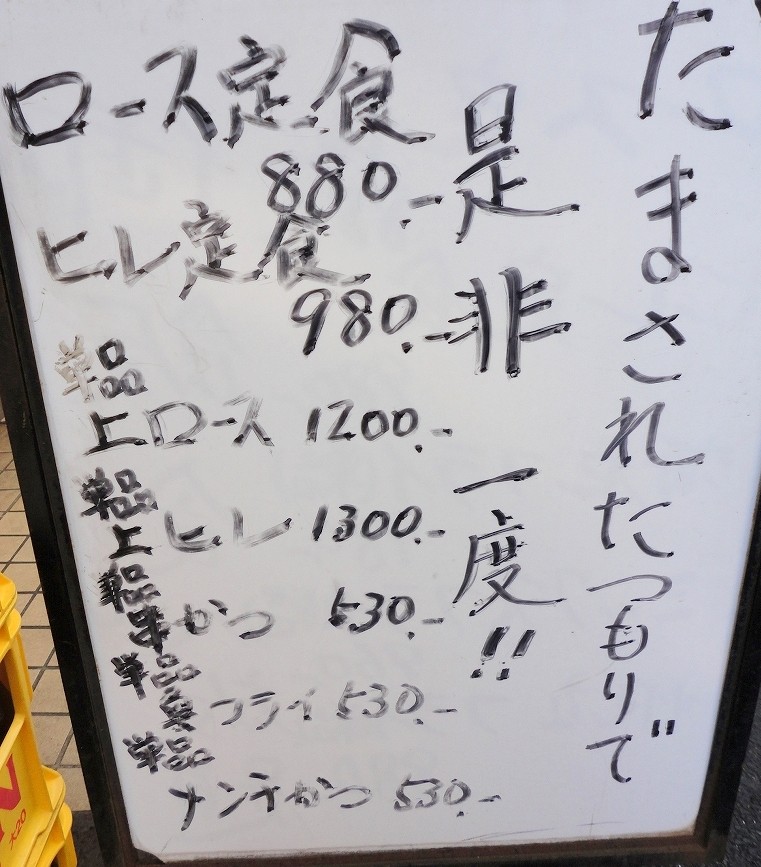 たまされたつもりで
是非一度!!
ロース定食
880.-
ヒレ定食
980.-
単品
上ロース 1200.-
単品
上ヒレ 1300.-
単品
串かつ 530.-
単品
魚フライ 530.-
単品
メンチかつ 530.-